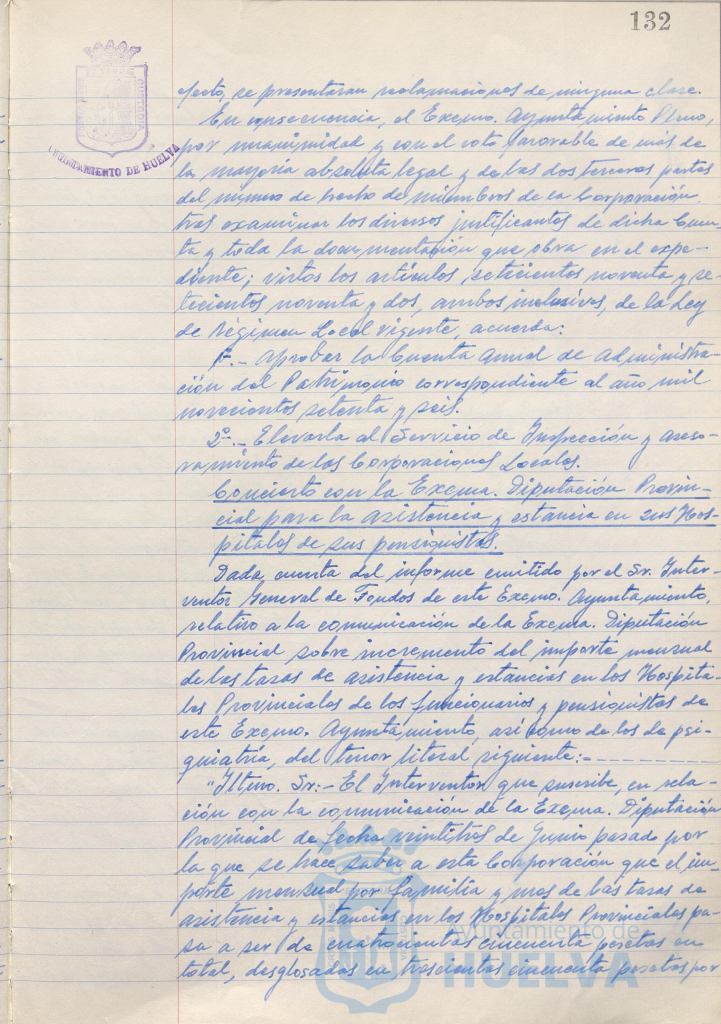 132
AYUNTAMIENTO DE HUELVA
efecto, se presentaran reclamaciones de ninguna clase.
En consecuencia, el Excmo. Ayuntamiento Pleno,
por unanimidad y con el voto favorable de más de
la mayoría absoluta legal y de las dos terceras partes
del número de hecho de miembros de la Corporación,
tras examinar los diversos justificantes de dicha Cuen-
ta y toda la documentación que obra en el expe-
diente; vistos los artículos, setecientos noventa y se-
tecientos noventa y dos, ambos inclusives, de la Ley
de Régimen Local vigente, acuerda:
1º.- Aprobar la Cuenta Anual de Administra-
ción del Patrimonio correspondiente al año mil
novecientos setenta y seis.
2º.- Elevarla al Servicio de Inspección y aseso-
ramiento de las Corporaciones Locales.
Concierto con la Excma. Diputación Provin-
cial para la asistencia y estancia en sus Hos-
pitales de sus pensionistas.
Dada cuenta del informe emitido por el Sr. Inter-
ventor General de Fondos de este Excmo. Ayuntamiento,
relativo a la comunicación de la Excma. Diputación
Provincial sobre incremento del importe mensual
de las tasas de asistencia y estancias en los Hospita-
les Provinciales de los funcionarios y pensionistas de
este Excmo. Ayuntamiento, así como de los de psi-
quiatría, del tenor literal siguiente:- - - - - - - - -
"Iltmo. Sr:- El Interventor que suscribe, en rela-
ción con la comunicación de la Excma. Diputación
Provincial de fecha veintitres de Junio pasado por
la que se hace saber a esta Corporación que el im-
porte mensual por familia y mes de las tasas de
asistencia y estancias en los Hospitales Provinciales pa-
sa a ser de cuatrocientas cincuenta pesetas en
total, desglosadas en trescientas cincuenta pesetas por
Ayuntamiento de
HUELVA